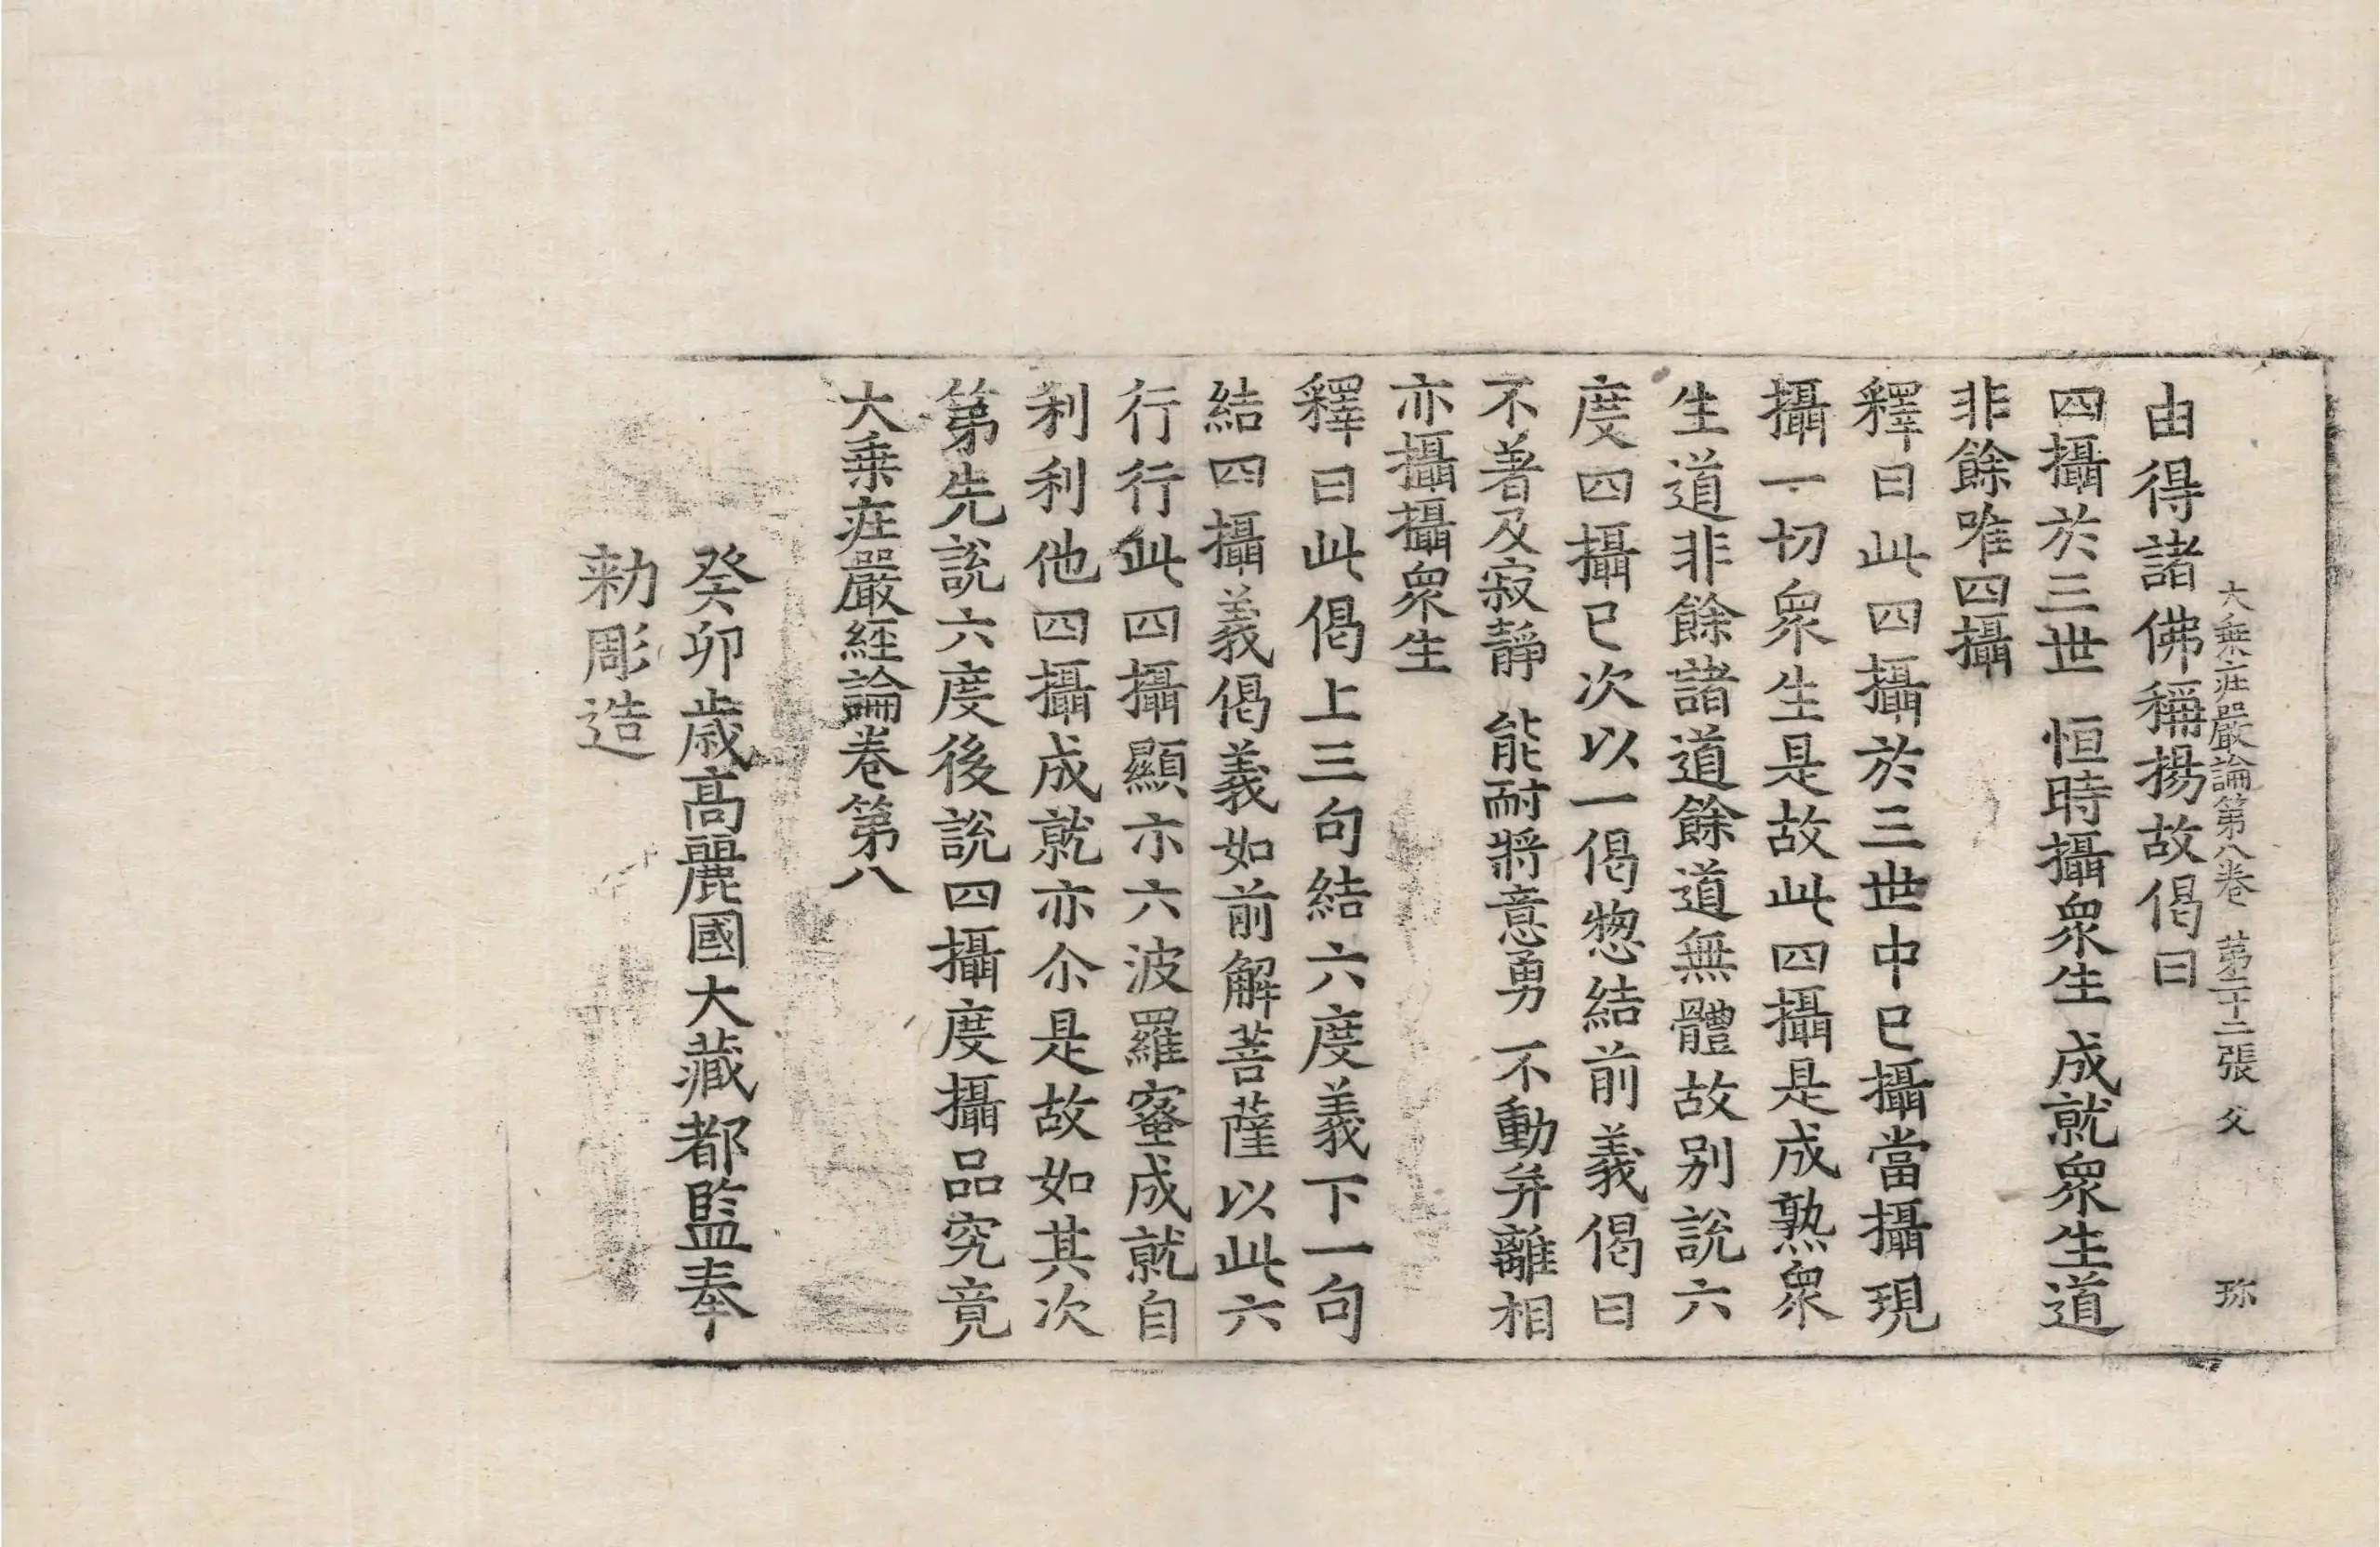 大乗庄嚴論第八卷　第二十二張　父　珎
由得諸佛稱揚故偈曰
四攝於三世　恒時攝衆生　成就衆生道
非餘唯四攝
釋曰此四攝於三世中已攝當攝現
攝一切衆生是故此四攝是成熟衆
生道非餘諸道餘道無體故别說六
度四攝已次以一偈惣結前義偈曰
不著及寂靜　能耐將意勇　不動并離相
亦攝攝衆生
釋曰此偈上三句結六度義下一句
結四攝義偈義如前解菩薩以此六
行行此四攝顯示六波羅蜜成就自
利利他四攝成就亦尒是故如其次
第先說六度後說四攝度攝品究竟
大乗庄嚴經論卷第八
癸卯歳高麗國大藏都監奉
勑彫造